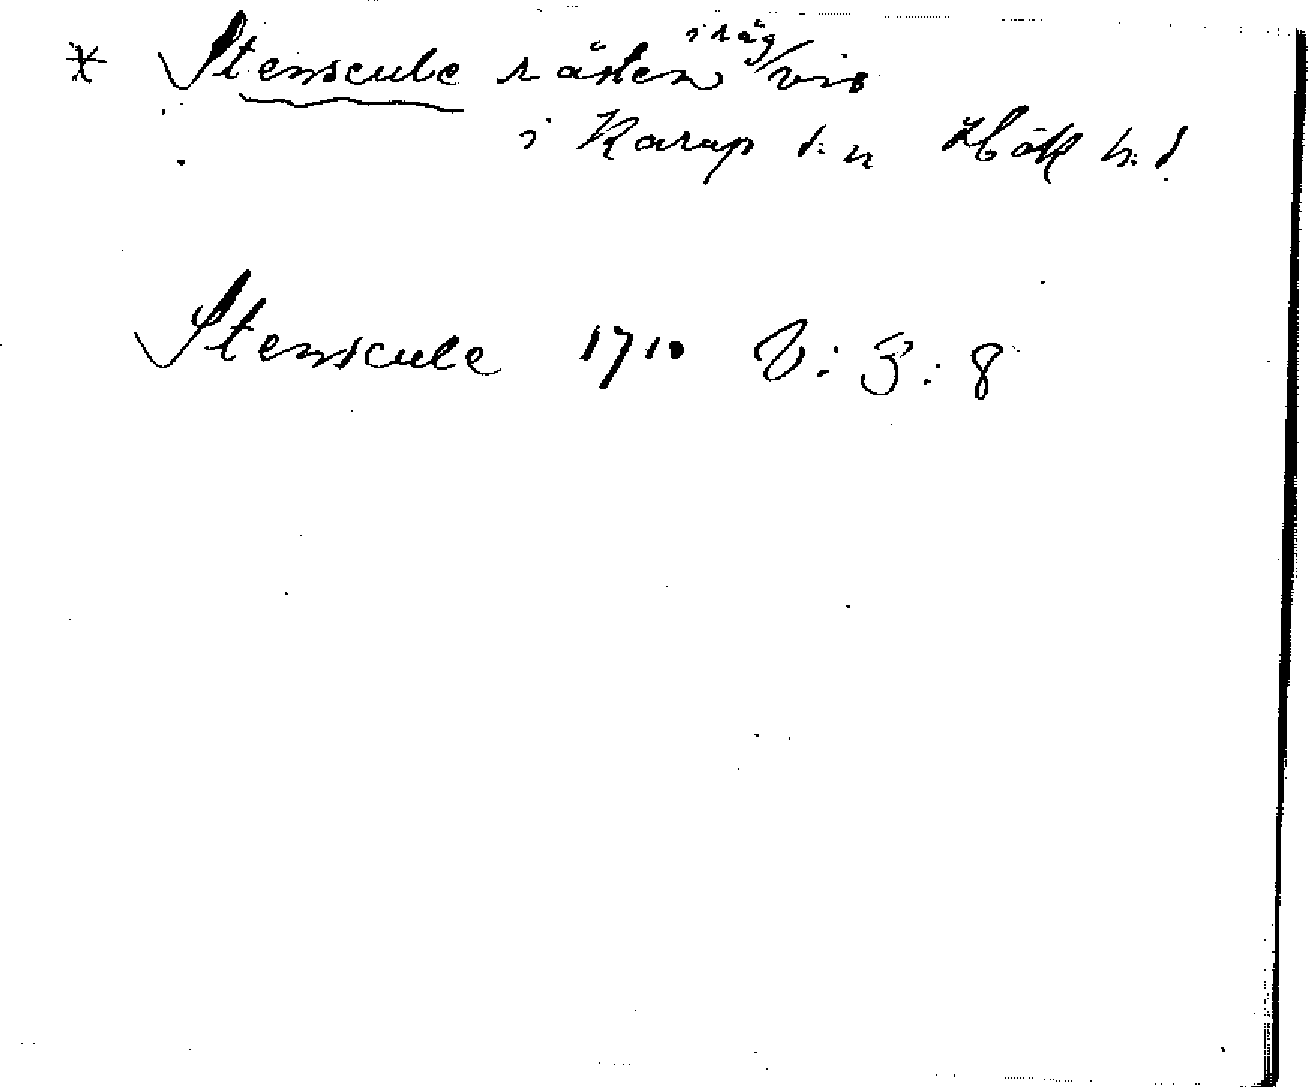 * Stenscule nästen i väg/vis
i Karap s:n Hök h:d
Stenscule 1710 V: 3: 8